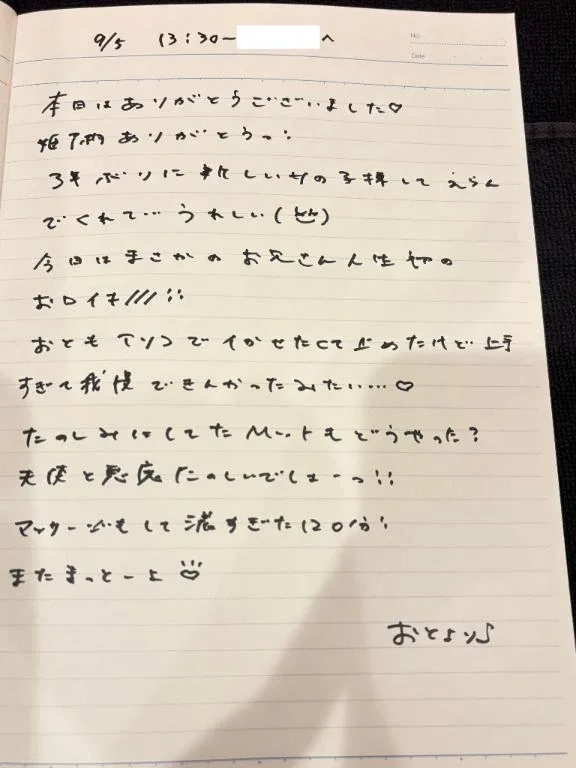 9/5 13:30~ へ
No.
Date
本日はありがとうございました♡
ありがとうっ!!
3年ぶりに新しい女の子探して えらん
でくれて… うれしい( )
今日はまさかの お兄さん人生初の
おロイネ///!!
おとも でイかせたくて止めたけど 上手
すぎて我慢できんかったみたい…♡
たのしみにしてたMットもどうやった?
天使と悪魔たのしいでしょーっ!!
マッサージもして濃すぎた120分!
またまっとーよ♡
おとより♪